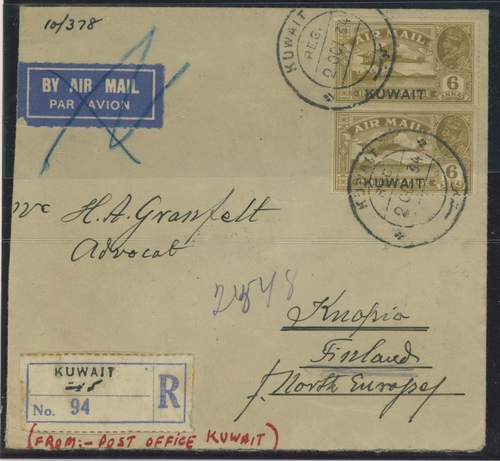 10/378
BY AIR MAIL
PAR AVION
KUWAIT
REG.
2 OCT 34
AIR MAIL
6
ANNAS
KUWAIT
AIR MAIL
6
KUWAIT
KUWAIT
REG
34
H. A. Granfelt
Advocat
Knopio
Finland
(North Europe)
KUWAIT
كويت
R
No. 94
(FROM:- POST OFFICE KUWAIT)